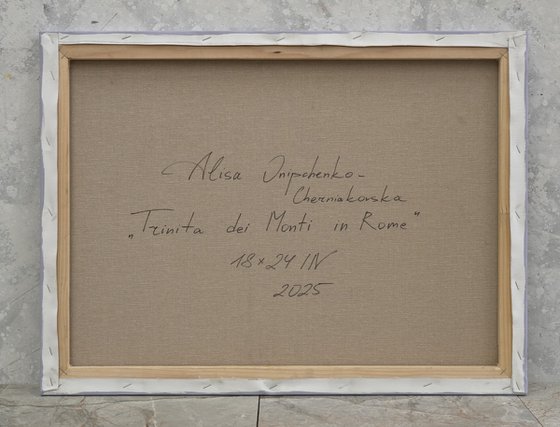 Alisa Onipchenko-
Cherniakovska
„Trinita dei Monti in Rome"
18×24 IN
2025